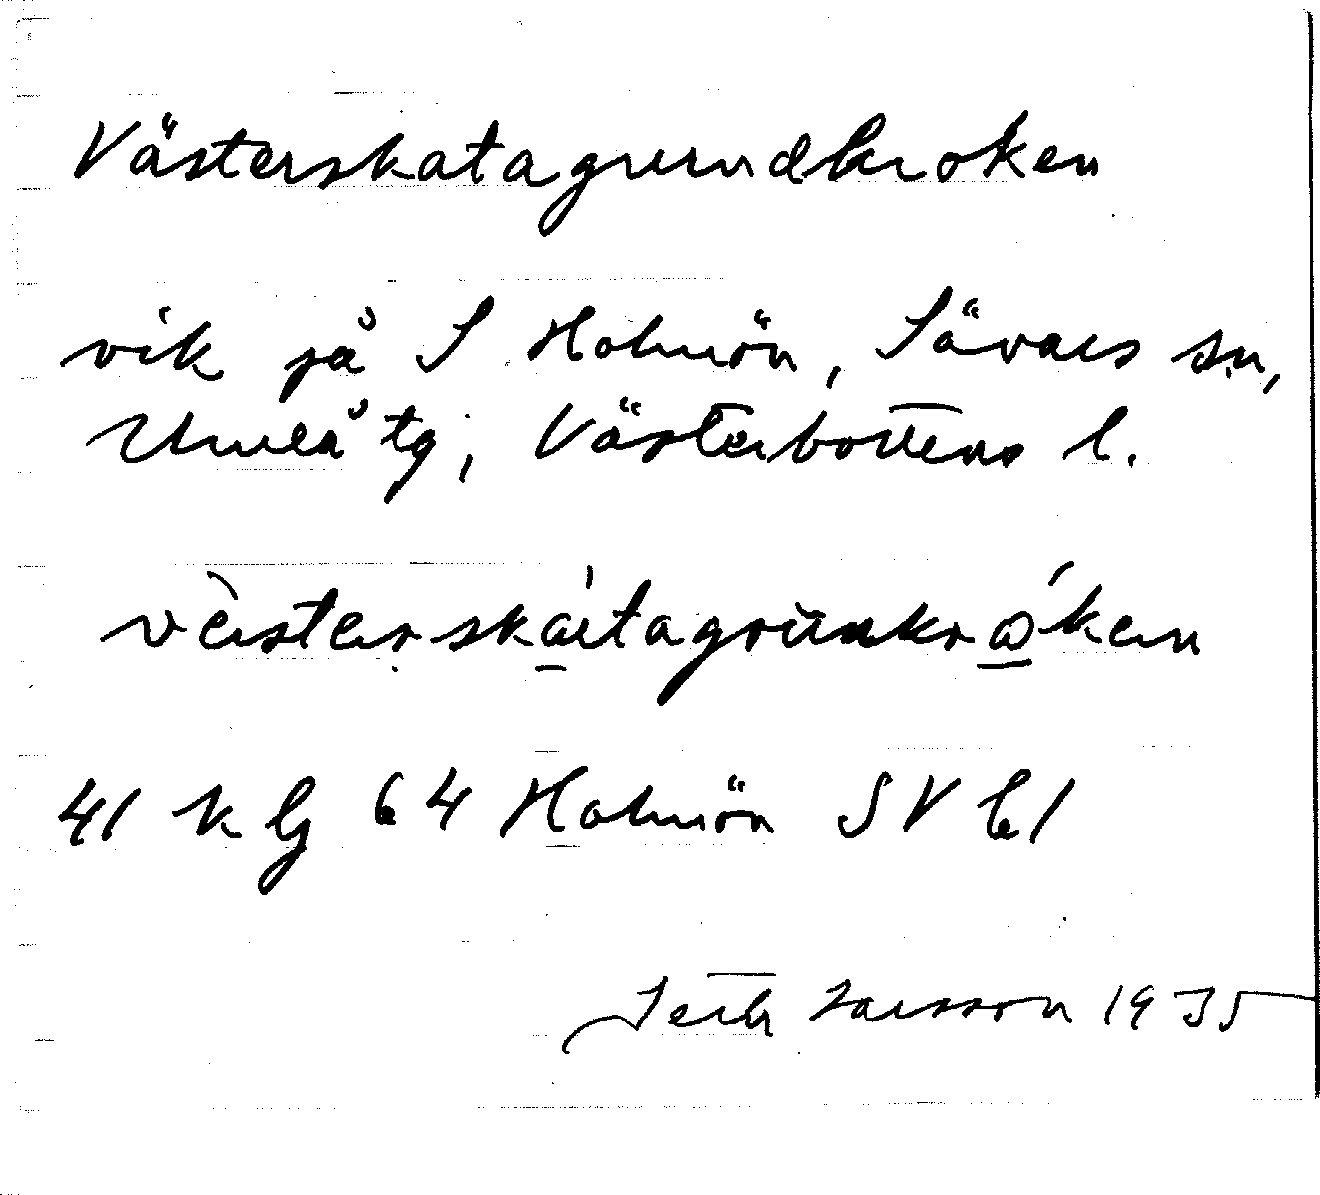 Västerskatagrundkroken
vik på S Holmön, Sävars sn,
Umeå tg, Västerbottens l.
41 k lj 64 Holmön SV bl
Larsson 1935